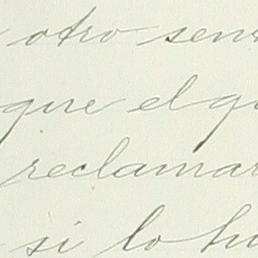 otro sen
que el q
reclamar
si lo hu